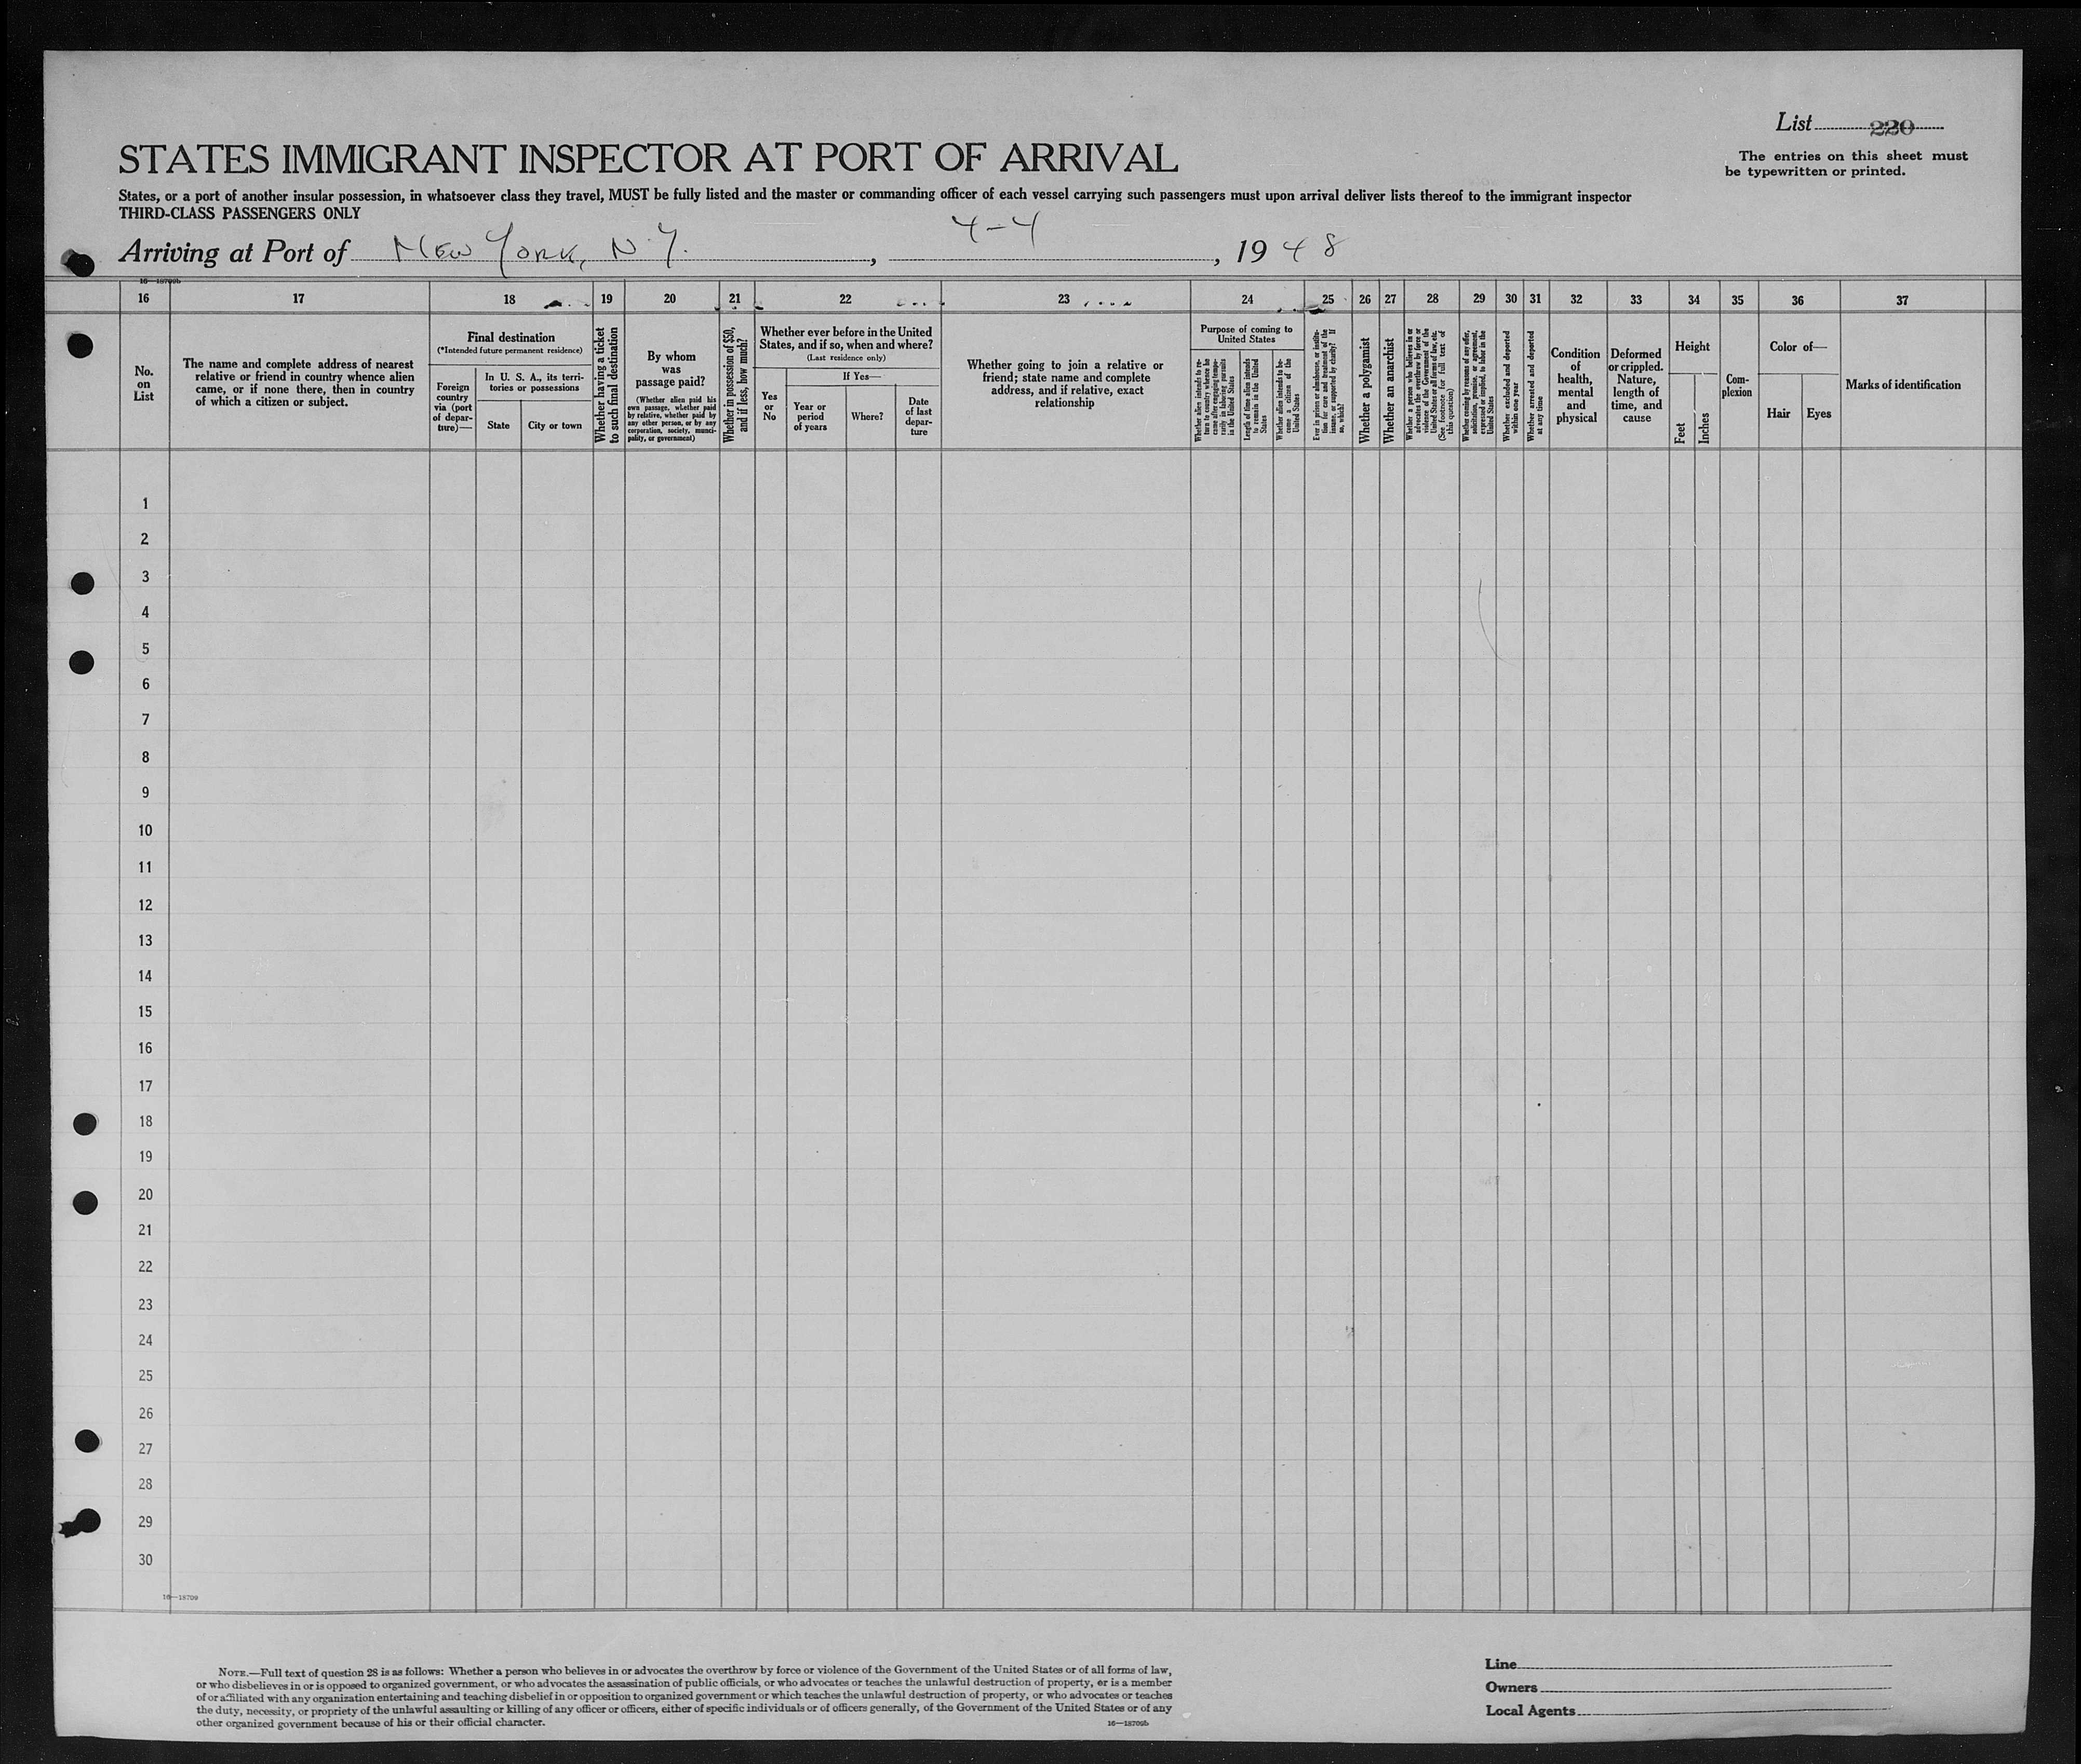 List 220
The entries on this sheet must
be typewritten or printed.
STATES IMMIGRANT INSPECTOR AT PORT OF ARRIVAL
States, or a port of another insular possession, in whatsoever class they travel, MUST be fully listed and the master or commanding officer of each vessel carrying such passengers must upon arrival deliver lists thereof to the immigrant inspector
THIRD-CLASS PASSENGERS ONLY
Arriving at Port of New York, N.Y. , 4-4 , 1948
16—18709b
16 17 18 19 20 21 22 23 24 25 26 27 28 29 30 31 32 33 34 35 36 37
No.
on
List
The name and complete address of nearest
relative or friend in country whence alien
came, or if none there, then in country
of which a citizen or subject.
Final destination
(*Intended future permanent residence)
Foreign
country
via (port
of depar-
ture)—
In U. S. A., its terri-
tories or possessions
State
City or town
Whether having a ticket
to such final destination
By whom
was
passage paid?
(Whether alien paid his
own passage, whether paid
by relative, whether paid by
any other person, or by any
corporation, society, munci-
pality, or government)
Whether in possession of $50,
and if less, how much?
Whether ever before in the United
States, and if so, when and where?
(Last residence only)
Yes
or
No
If Yes—
Year or
period
of years
Where?
Date
of last
depar-
ture
Whether going to join a relative or
friend; state name and complete
address, and if relative, exact
relationship
Purpose of coming to
United States
Whether alien intends to re-
turn to country whence he
came after engaging tempo-
rarily in laboring pursuits
in the United States
Length of time alien intends
to remain in the United
States
Whether alien intends to be-
come a citizen of the
United States
Ever in prison or almshouse, or institu-
tion for care and treatment of the
insane, or supported by charity? If
so, which?
Whether a polygamist
Whether an anarchist
Whether a person who believes in or
advocates the overthrow by force or
violence of the Government of the
United States or all forms of law, etc.
(See footnote for full text of
this question)
Whether coming by reasons of any offer,
solicitation, promise, or agreement,
expressed or implied, to labor in the
United States
Whether excluded and deported
within one year
Whether arrested and deported
at any time
Condition
of
health,
mental
and
physical
Deformed
or crippled.
Nature,
length of
time, and
cause
Height
Feet
Inches
Com-
plexion
Color of—
Hair
Eyes
Marks of identification
1
2
3
4
5
6
7
8
9
10
11
12
13
14
15
16
17
18
19
20
21
22
23
24
25
26
27
28
29
30
16—18709
NOTE.—Full text of question 28 is as follows: Whether a person who believes in or advocates the overthrow by force or violence of the Government of the United States or of all forms of law,
or who disbelieves in or is opposed to organized government, or who advocates the assassination of public officials, or who advocates or teaches the unlawful destruction of property, or is a member
of or affiliated with any organization entertaining and teaching disbelief in or opposition to organized government or which teaches the unlawful destruction of property, or who advocates or teaches
the duty, necessity, or propriety of the unlawful assaulting or killing of any officer or officers, either of specific individuals or of officers generally, of the Government of the United States or of any
other organized government because of his or their official character.
16—18709b
Line
Owners
Local Agents